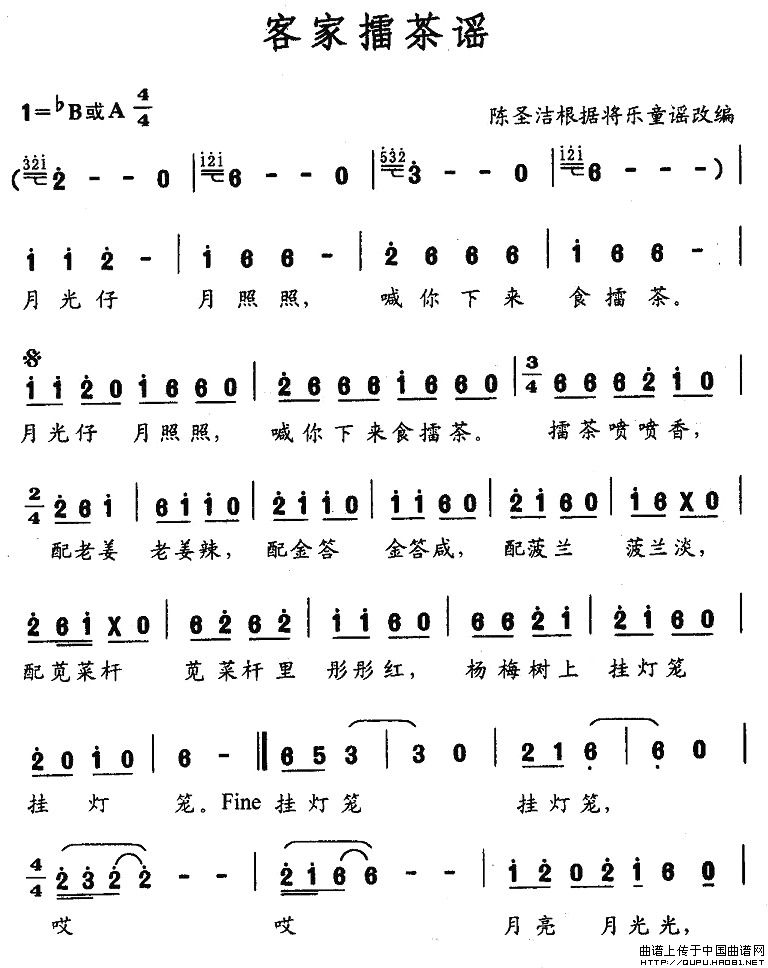 客家擂茶谣
1=♭B或A 4/4
陈圣洁根据将乐童谣改编
( 3̇2̇1̇ 2̇ - - 0 | 1̇2̇1̇ 6 - - 0 | 5̇3̇2̇ 3̇ - - 0 | 1̇2̇1̇ 6 - - - ) |
1̇ 1̇ 2̇ - | 1̇ 6 6 - | 2̇ 6 6 6 | 1̇ 6 6 - |
月光仔 月照照, 喊你下来 食擂茶。
1̇ 1̇ 2̇ 0 1̇ 6 6 0 | 2̇ 6 6 6 1̇ 6 6 0 | 3/4 6 6 6 2̇ 1̇ 0 |
月光仔 月照照, 喊你下来食擂茶。 擂茶喷喷香,
2/4 2̇ 6 1̇ | 6 1̇ 1̇ 0 | 2̇ 1̇ 1̇ 0 | 1̇ 1̇ 6 0 | 2̇ 1̇ 6 0 | 1̇ 6 X 0 |
配老姜 老姜辣, 配金答 金答咸, 配菠兰 菠兰淡,
2̇ 6 1̇ X 0 | 6 2̇ 6 2̇ | 1̇ 1̇ 6 0 | 6 6 2̇ 1̇ | 2̇ 1̇ 6 0 |
配苋菜杆 苋菜杆里 彤彤红, 杨梅树上 挂灯笼
2̇ 0 1̇ 0 | 6 - ‖ 6 5 3 | 3 0 | 2 1 6̣ | 6̣ 0 |
挂灯笼。Fine 挂灯笼 挂灯笼,
4/4 2̇ 3̇ 2̇ 2̇ - - | 2̇ 1̇ 6 6 - - | 1̇ 2̇ 0 2̇ 1̇ 6 0 |
哎 哎 月亮 月光光,
曲谱上传于中国曲谱网
HTTP://QUPU.HAO81.NET